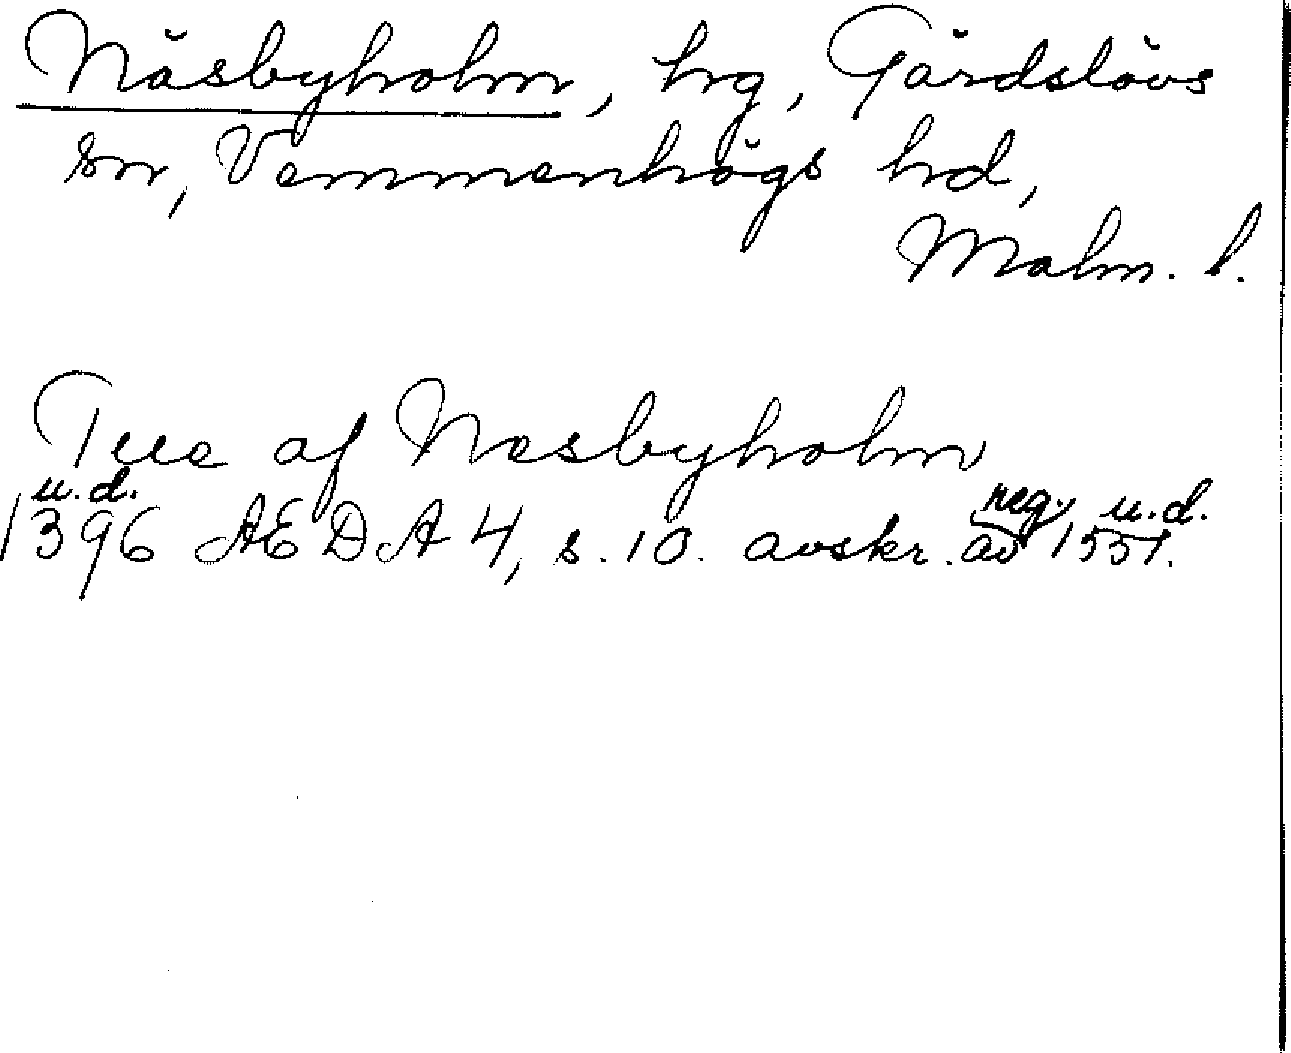 Näsbyholm, hg, Gärdslövs
sn, Vemmenhögs hd,
Malm. l.
Tue af Nesbyholm
u.d. reg. u.d.
1396 AEDA 4, s. 10. avskr. av 1551.